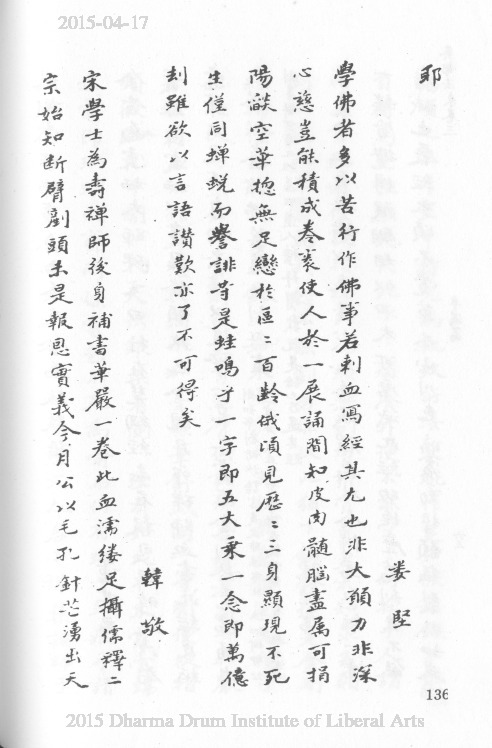 2015-04-17
耶
婁堅
學佛者多以苦行作佛事若刺血寫經其尤也非大願力非深
心慈豈能積成卷袠使人於一展誦間知皮肉髓腦盡属可捐
陽燄空華揔無足戀於區〻百齡俄頃見歷〻三身顯現不死
生僅同蟬蛻而譽誹等是蛙鳴乎一字即五大乘一念即萬億
刦雖欲以言語讃歎亦了不可得矣
韓敬
宋學士為壽禅師後身補書華嚴一卷此血濡缕足攝儒釋二
宗始知断臂剜頭未是報恩實義今月公以毛孔針芒湧出天
136
2015 Dharma Drum Institute of Liberal Arts